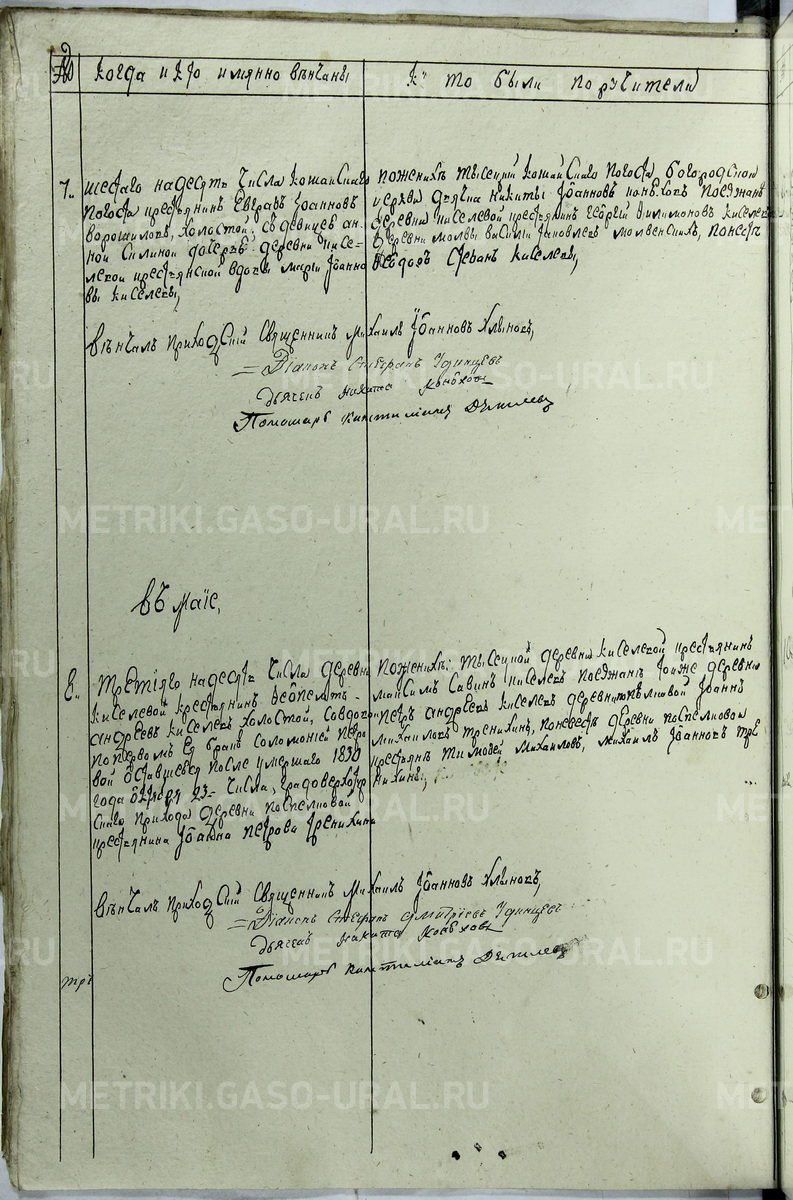 № Когда и кто имянно венчаны
Кто были поручители
1.
шестаго надесять числа кошайскаго
погоста крестьянинъ Евграфъ Иоанновъ
ворошиловъ, холостой; съ девицею ан-
ной силиной дочерью деревни кисе-
левой крестьянской вдовы марии Иоанно-
вы киселевы,
по женихѣ тысецкий кошайскаго погоста, богородской
церкви дьячка никиты Иоанновъ конюховъ поезжанъ
деревни киселевой крестьянинъ георгий филимоновъ киселевъ
деревни молвы василий яковлевъ молвинскихъ, по невестѣ
Феодоръ Стефанъ киселевы,
вѣнчалъ приходский священникъ Михаилъ Иоанновъ Хлыновъ,
Диаконъ Стефанъ Удинцевъ
дьячекъ никита конюховъ
Пономарь
въ маїе,
8.
третїяго надесять числа деревни
киселевой крестьянинъ Феопемптъ
андреевъ киселевъ холостой, со вдовою
по первомъ ея браке соломонией петро-
вой оставшеюся после умершаго 1830
года октября 23 числа, градоверхотур-
скаго прихода деревни поспеловой
крестьянина Иоанна петрова тренихина
по женихѣ: тысецкой деревни киселевой крестьянинъ
максимъ савинъ киселевъ поезжанъ тоиже деревни
петръ андреевъ киселевъ деревни поспеловой Иоаннъ
михаиловъ тренихинъ, по невестѣ деревни поспеловой
крестьяне тимофей михаиловъ, михаилъ Иоанновъ тре
нихины,
вѣнчалъ приходский священникъ Михаилъ Иоанновъ Хлыновъ,
Диаконъ Стефанъ Дмитриевъ Удинцевъ
дьячекъ никита конюховъ
Пономарь
тръ
METRIKI.GASO-URAL.RU